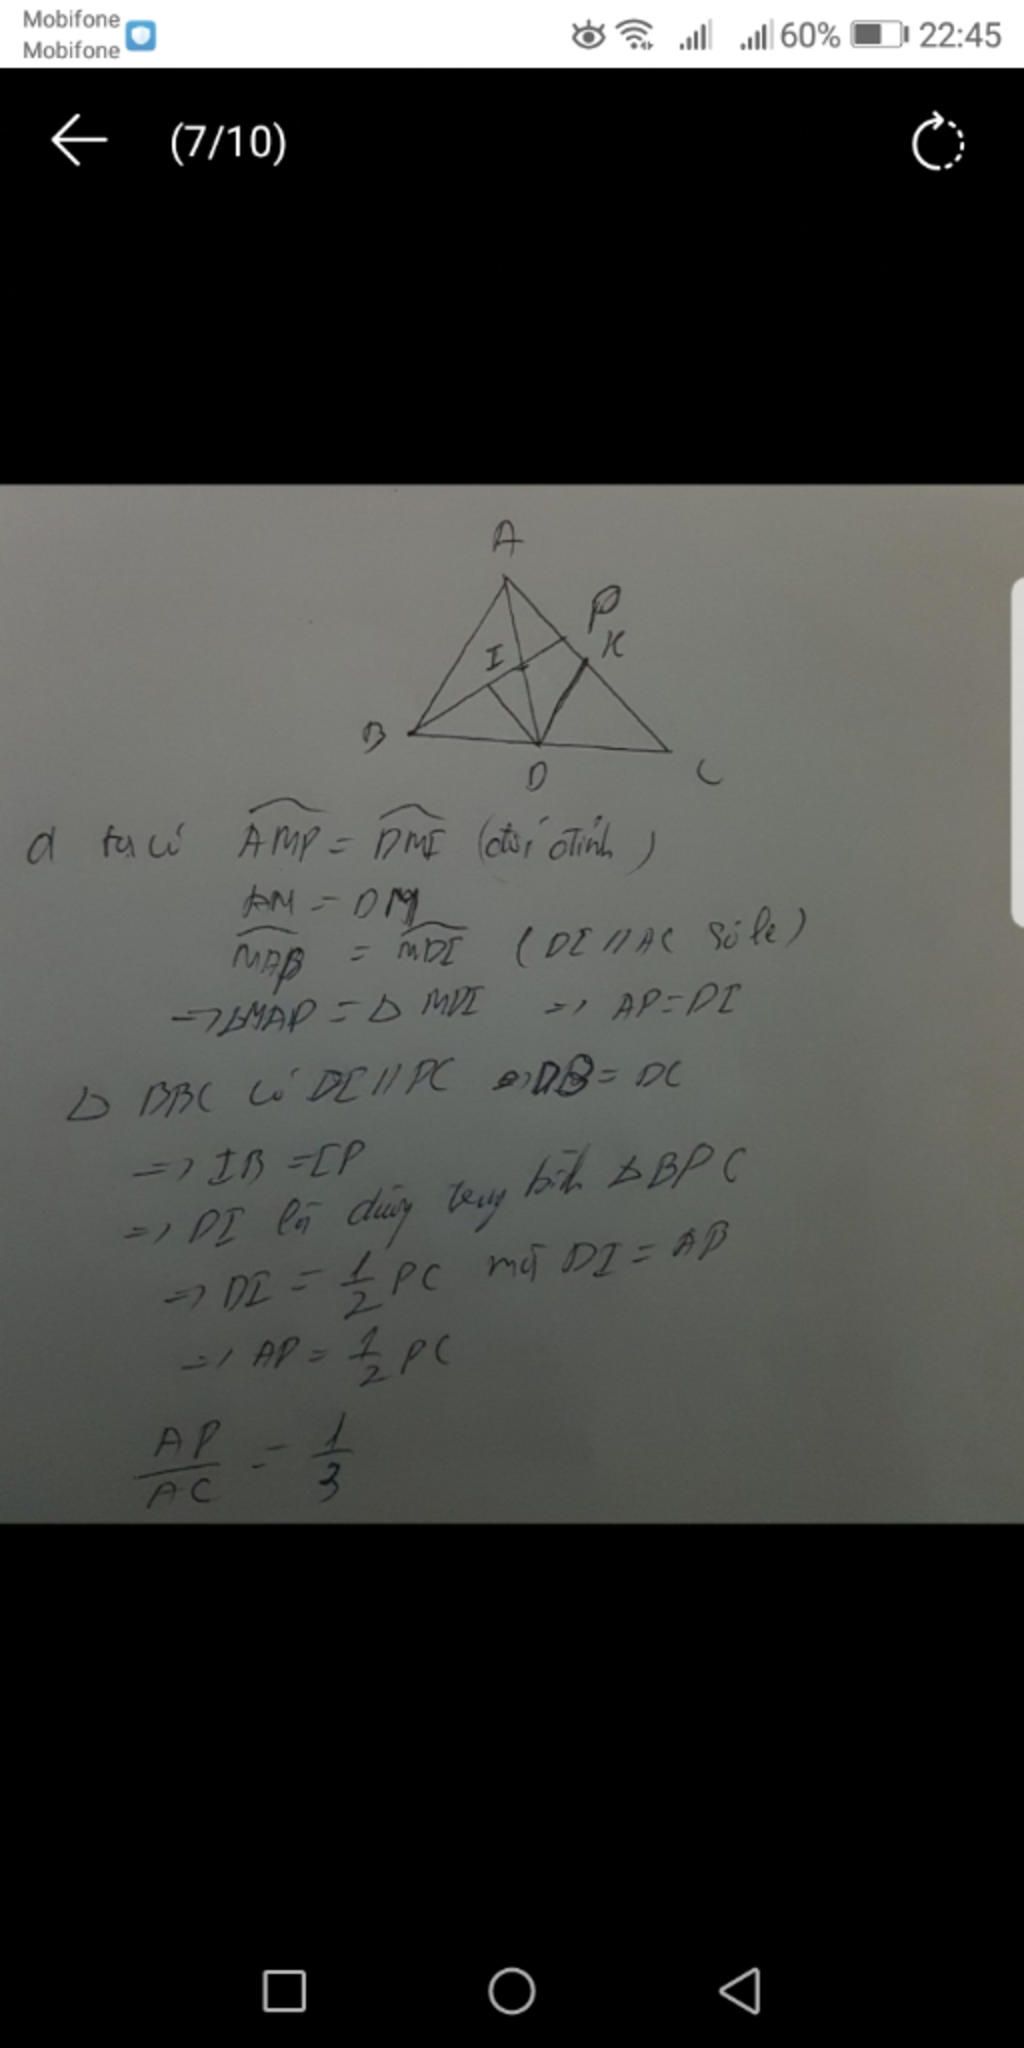 Mobifone
Mobifone
60% 22:45
(7/10)
A
P
I K
B
D C
a ta có AMP = DMI (đối đỉnh)
AM = DM
MAP = MDI (DI // AC so le)
=> ΔMAP = Δ MDI => AP = DI
Δ BBC có DI // PC DB = DC
=> IB = IP
=> DI là đường trung bình ΔBPC
=> DI = 1/2 PC mà DI = AP
=> AP = 1/2 PC
AP/AC = 1/3